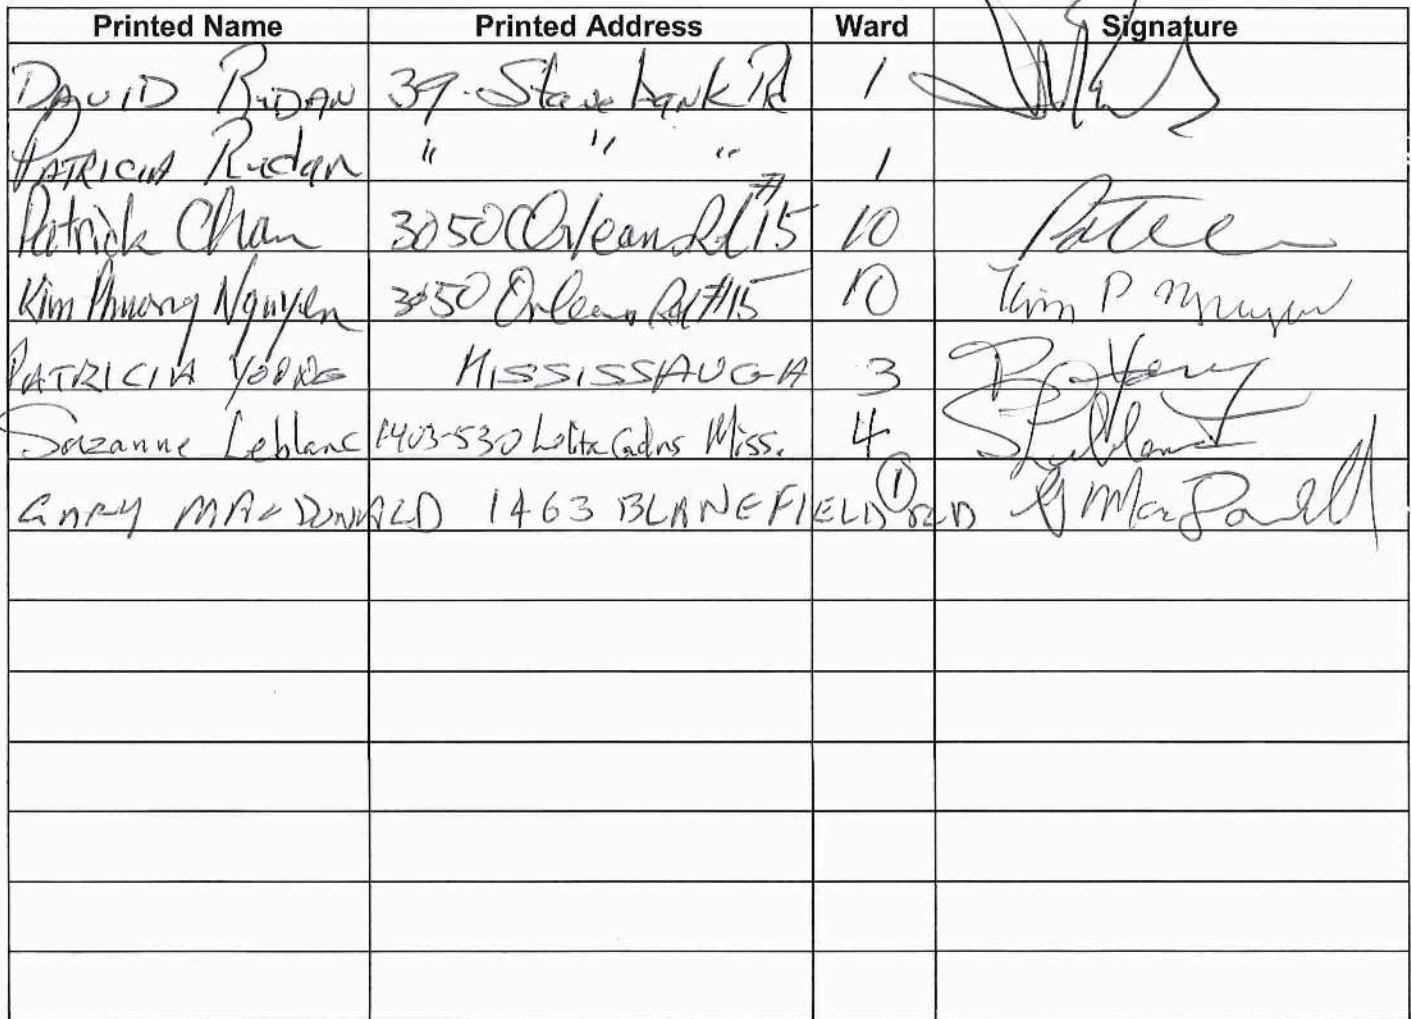 Printed Name Printed Address Ward Signature
DAVID 39 Stavebank Rd 1
PATRICIA 〃 〃 〃 1
Patrick Chan 3050 Orlean Rd #15 10
Kim Phuong Nguyen 3050 Orlean Rd #15 10 Kim P Nguyen
PATRICIA YOUNG MISSISSAUGA 3 P Young
Suzanne Leblanc 1403-530 Lolita Gdns Miss. 4 S Leblanc
GARY MACDONALD 1463 BLANEFIELD 1 RD G MacDonald